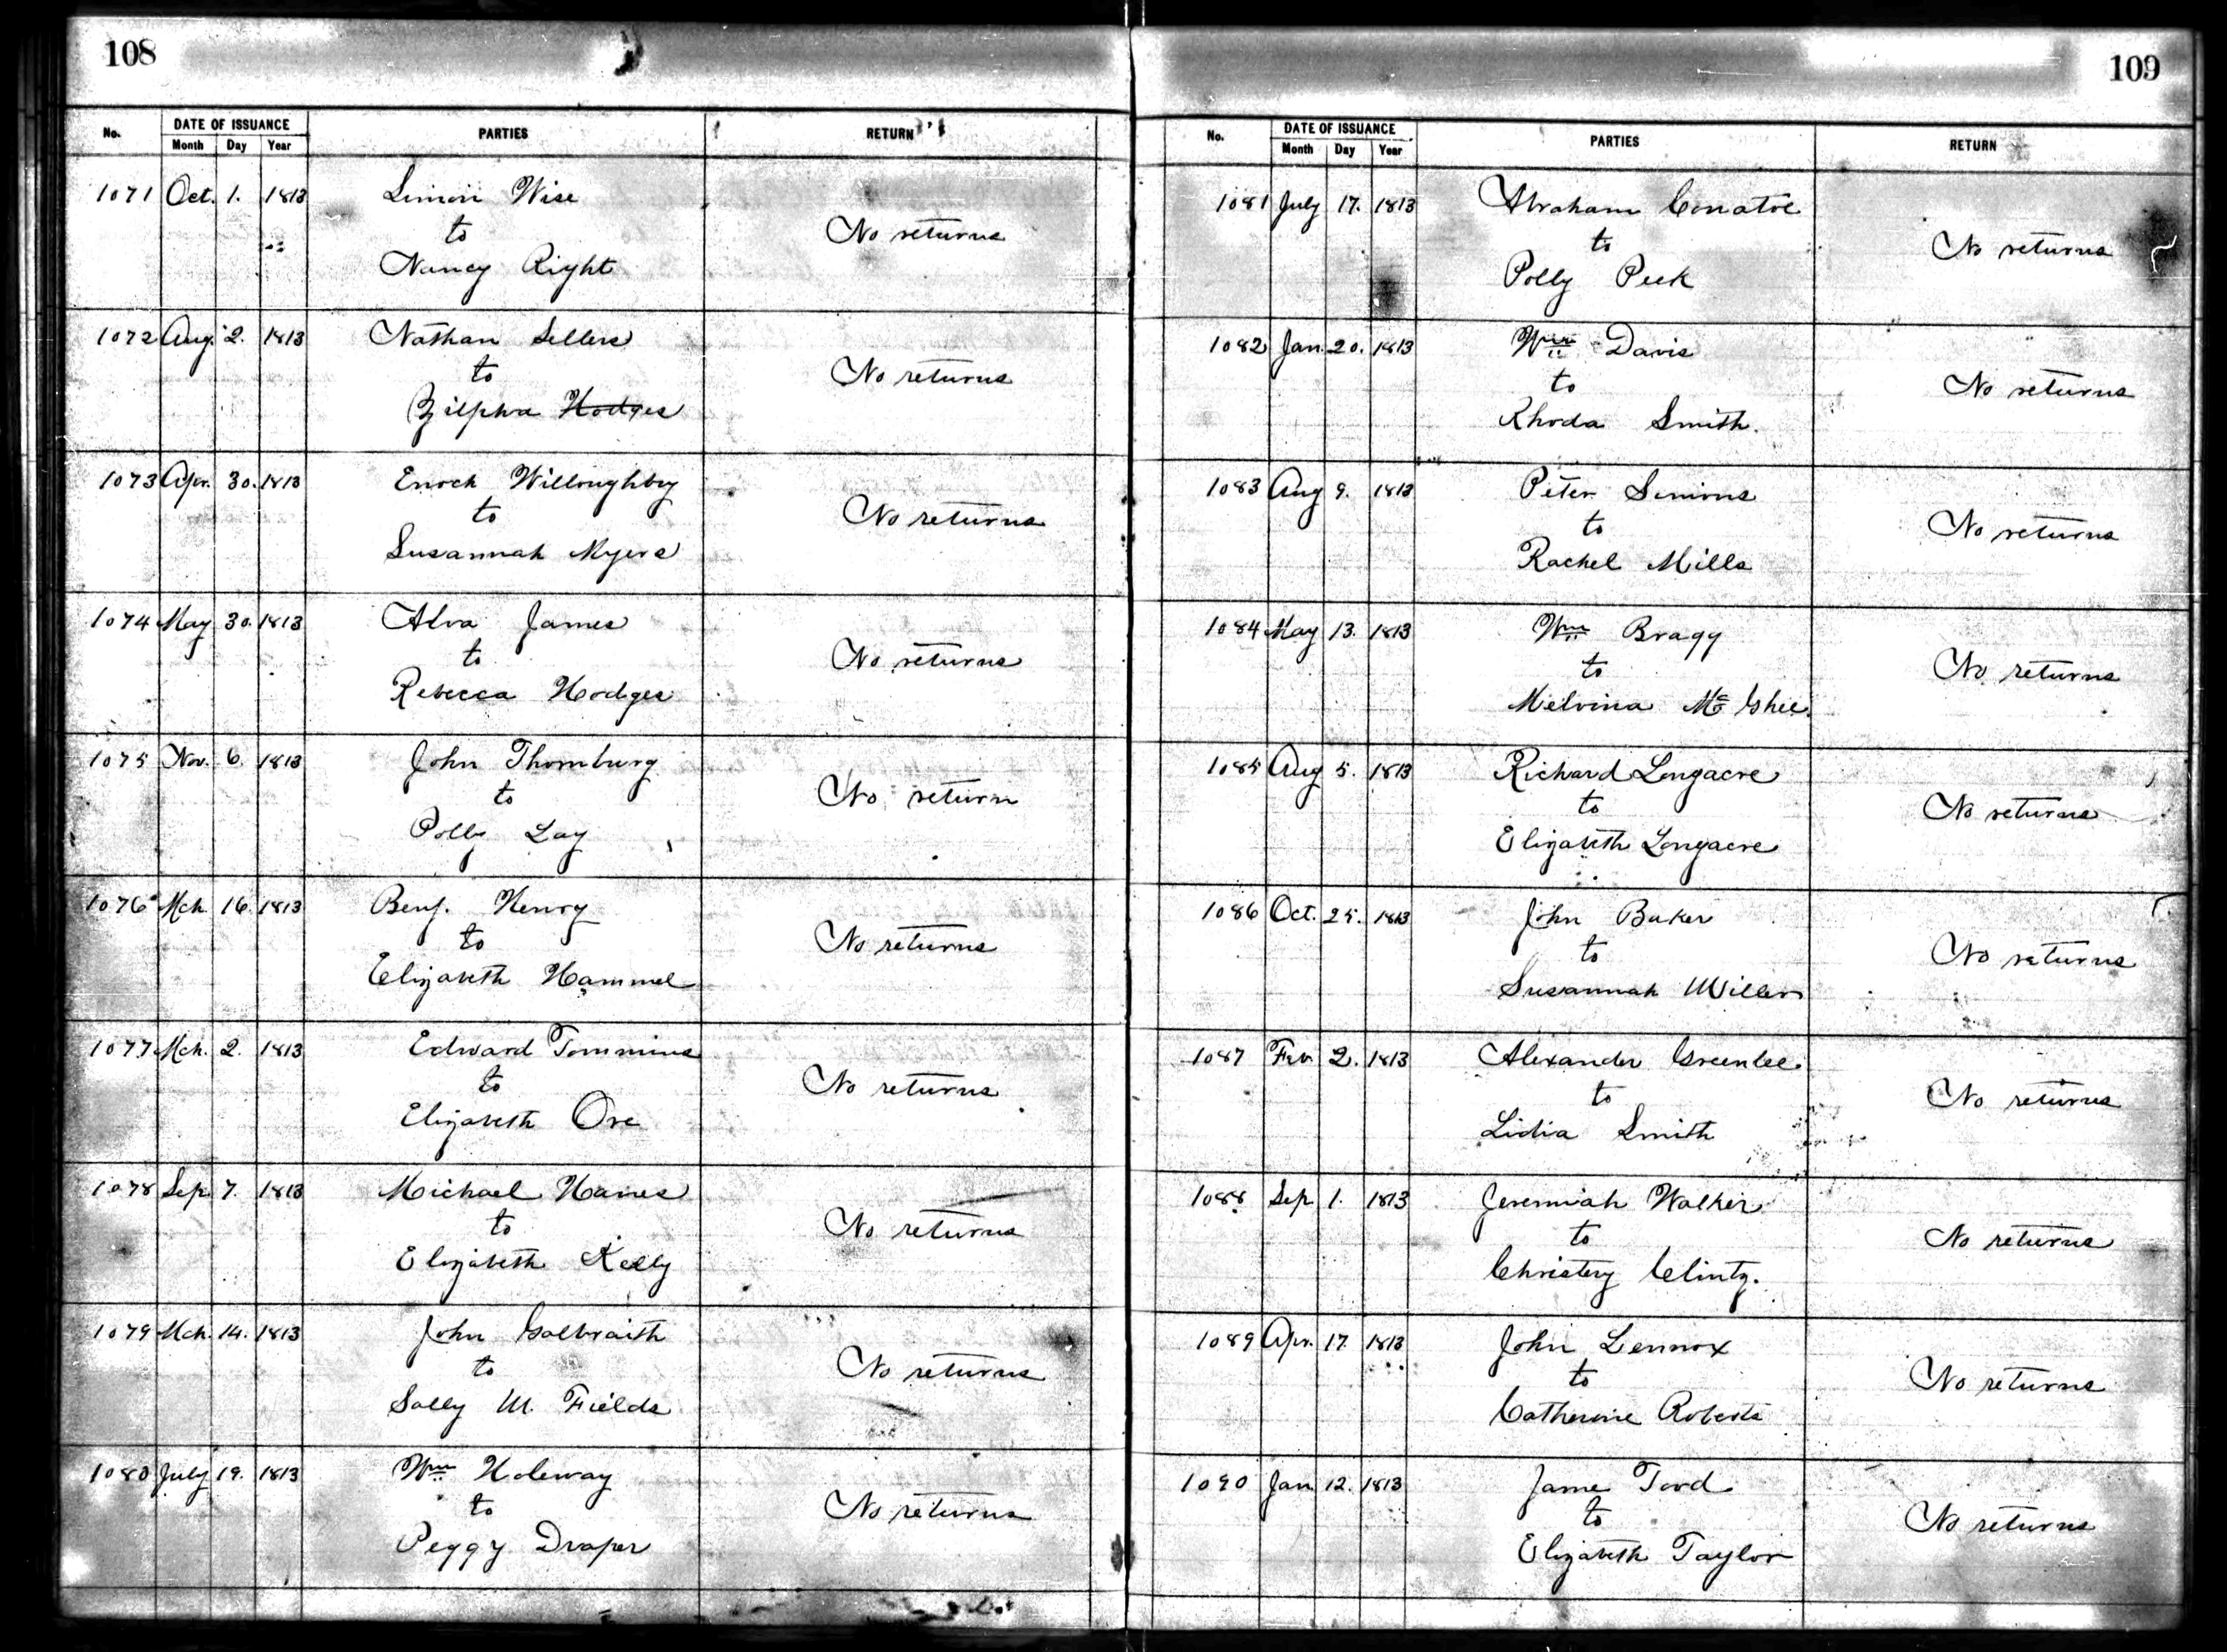 108
No. DATE OF ISSUANCE PARTIES RETURN
Month Day Year
1071 Oct. 1. 1813 Simon Wise
to No returns
Nancy Right
1072 Aug. 2. 1813 Nathan Sellers
to No returns
Zilpha Hodges
1073 Apr. 30. 1813 Enoch Willoughby
to No returns
Susannah Myers
1074 May 30. 1813 Alva James
to No returns
Rebecca Hodges
1075 Nov. 6. 1813 John Thornburg
to No return
Polly Lay
1076 Mch 16. 1813 Benj. Henry
to No returns
Elizabeth Hammel
1077 Mch. 2. 1813 Edward Tommins
to No returns
Elizabeth Ore
1078 Sep. 7. 1813 Michael Hanes
to No returns
Elizabeth Kelly
1079 Mch. 14. 1813 John Galbraith
to No returns
Sally M. Fields
1080 July 19. 1813 Wm Holeway
to No returns
Peggy Draper
109
No. DATE OF ISSUANCE PARTIES RETURN
Month Day Year
1081 July 17. 1813 Abraham Conatoe
to No returns
Polly Peek
1082 Jan. 20. 1813 Wm Davis
to No returns
Rhoda Smith.
1083 Aug 9. 1813 Peter Simons
to No returns
Rachel Mills
1084 May 13. 1813 Wm Bragg
to No returns
Melvina Mc Ghee.
1085 Aug 5. 1813 Richard Longacre
to No returns
Elizabeth Longacre
1086 Oct. 25. 1813 John Baker
to No returns
Susannah Miller
1087 Feb. 2. 1813 Alexander Greenlee.
to No returns
Lidia Smith
1088 Sep 1. 1813 Jeremiah Walker
to No returns
Christery Clintz.
1089 Apr. 17. 1813 John Lennox
to No returns
Catherine Roberts
1090 Jan 12. 1813 Jame Ford
to No returns
Elizabeth Taylor